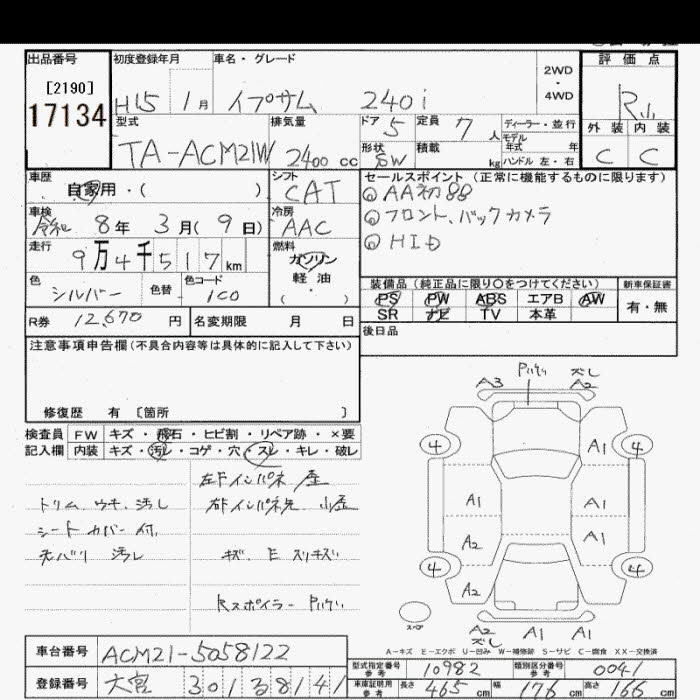 出品番号
[2190]
17134
初度登録年月
H15 1月
車名・グレード
イプサム 240i
2WD
・
4WD
評価点
外装 内装
C C
型式
TA-ACM21W
排気量
2400 cc
ドア 5
定員 7人
形状 SW
積載 kg
ディーラー・並行
モデル年式 年
ハンドル 左・右
車歴
自家用・( )
シフト
CAT
車検
令和 8年 3月( 9日)
冷房
AAC
走行
9万4千517km
燃料
ガソリン
軽油
( ・ )
色
シルバー
色替
色コード
1C0
R券 12,670 円
名変期限 月 日
セールスポイント (正常に機能するものに限ります)
◎AA初出品
◎フロント、バックカメラ
◎HID
装備品 (純正品に限り○をつけてください)
PS PW ABS エアB AW
SR ナビ TV 本革
新車保証書
有・無
後日品
注意事項申告欄(不具合内容等は具体的に記入して下さい)
修復歴 有 〔箇所 〕
検査員記入欄
FW キズ・飛石・ヒビ割・リペア跡・×要
内装 キズ・汚レ・コゲ・穴・スレ・キレ・破レ
左Fインパネ
トリム、ウキ、汚レ
右Fインパネ先
シートカバー付
天バリ 汚レ
キズ、E スリキズ
Rスポイラー
A3 A2 ズレ
4 A1 4
A1 A1
A2 A1
4 A2 4
スペア
A2 ズレ A1 A1
A-キズ E-エクボ U-凹み W-補修跡 S-サビ C-腐食 XX-交換済
車台番号 ACM21-5058122
登録番号 大宮 301
型式指定番号 参考 10982
類別区分番号 参考 0041
車庫証明用 参考 長さ 465 cm 幅 176 cm 高さ 166 cm